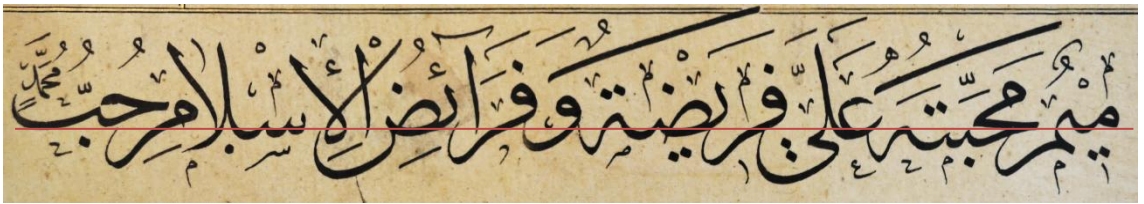 مِيْمُ مَحَبَّتُهُ عَلَيَّ فَرِيْضَةٌ وَفَرَآئِضُ الْأِسْلَامِ حُبُّ مُحَمَّدٍ